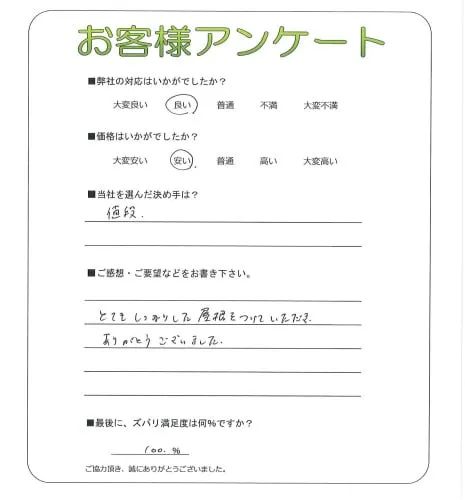 お客様アンケート
■弊社の対応はいかがでしたか？
大変良い 良い 普通 不満 大変不満
■価格はいかがでしたか？
大変安い 安い 普通 高い 大変高い
■当社を選んだ決め手は？
値段.
■ご感想・ご要望などをお書き下さい。
とてもしっかりした屋根をつけていただき.
ありがとうございました.
■最後に、ズバリ満足度は何%ですか？
100. %
ご協力頂き、誠にありがとうございました。